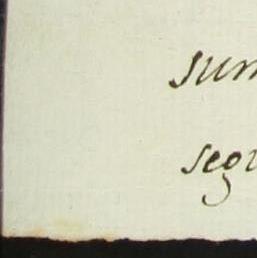 sum
segu